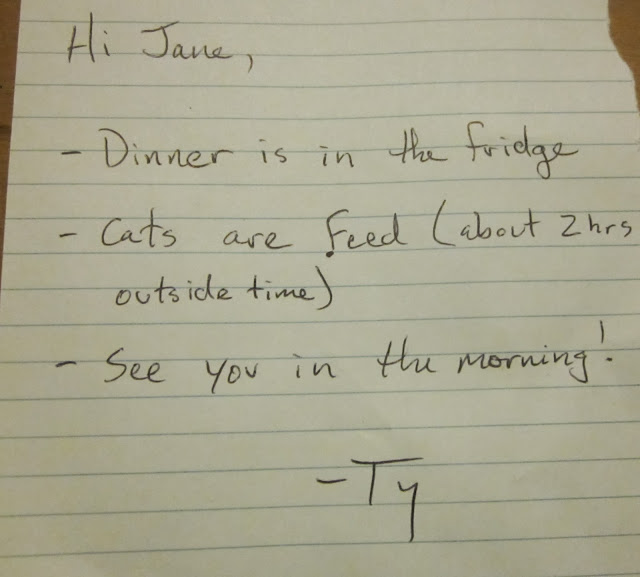 Hi Jane,
- Dinner is in the fridge
- Cats are feed (about 2hrs
outside time)
- See you in the morning!
-Ty